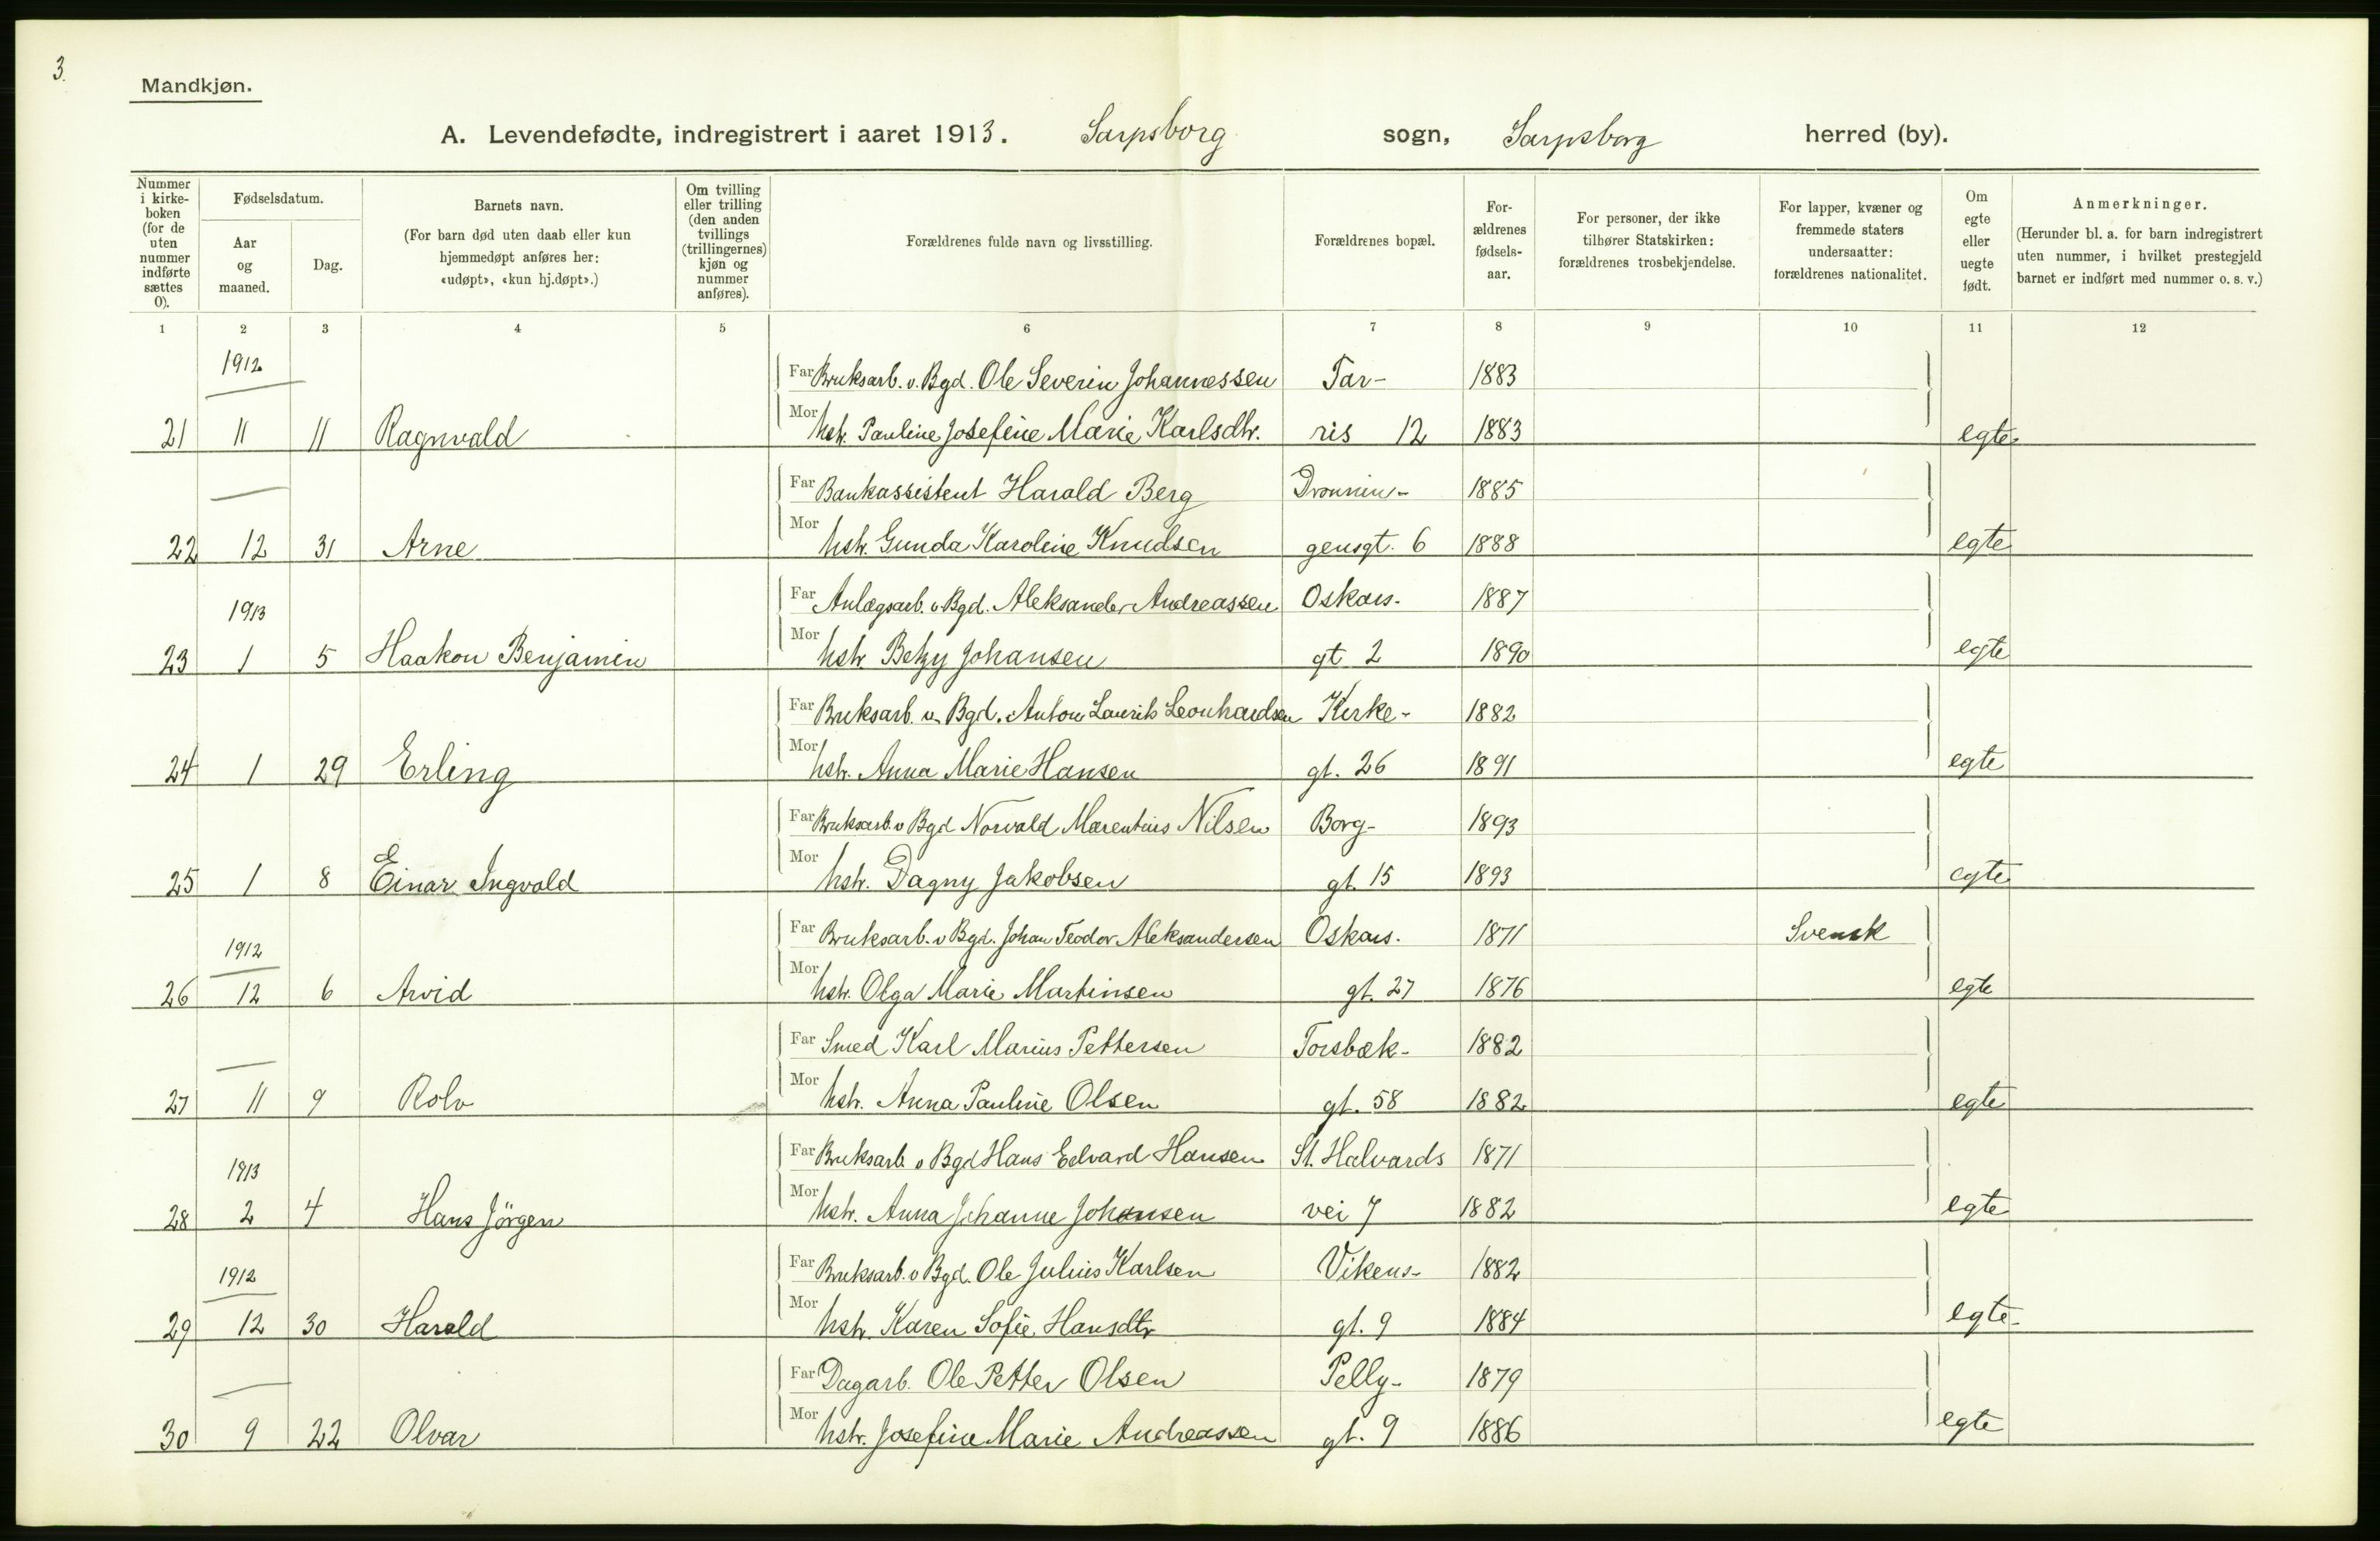 3.
Mandkjøn.
A. Levendefødte, indregistrert i aaret 1913. Sarpsborg sogn, Sarpsborg herred (by).
Nummer i kirkeboken (for de uten nummer indførte sættes 0).
Fødselsdatum.
Aar og maaned.
Dag.
Barnets navn.
(For barn død uten daab eller kun hjemmedøpt anføres her: «udøpt», «kun hj.døpt».)
Om tvilling eller trilling (den anden tvillings (trillingernes) kjøn og nummer anføres).
Forældrenes fulde navn og livsstilling.
Forældrenes bopæl.
Forældrenes fødselsaar.
For personer, der ikke tilhører Statskirken: forældrenes trosbekjendelse.
For lapper, kvæner og fremmede staters undersaatter: forældrenes nationalitet.
Om egte eller uegte født.
Anmerkninger.
(Herunder bl. a. for barn indregistrert uten nummer, i hvilket prestegjeld barnet er indført med nummer o. s. v.)
1 2 3 4 5 6 7 8 9 10 11 12
1912 Far Bruksarb. v. Bgd. Ole Severin Johannessen Tar- 1883
21 11 11 Ragnvald Mor hstr. Pauline Josefine Marie Karlsdtr. ris 12 1883 egte
— Far Bankassistent Harald Berg Dronnin- 1885
22 12 31 Arne Mor hstr. Gunda Karoline Knudsen gensgt. 6 1888 egte
1913 Far Anlægsarb. v Bgd. Aleksander Andreassen Oskars- 1887
23 1 5 Haakon Benjamin Mor hstr Betzy Johansen gt 2 1890 egte
Far Bruksarb. v. Bgd. Anton Laurits Leonhardsen Kirke- 1882
24 1 29 Erling Mor hstr. Anna Marie Hansen gt. 26 1891 egte
Far Bruksarb. v Bgd Norvald Marentius Nilsen Borg- 1893
25 1 8 Einar Ingvald Mor hstr. Dagny Jakobsen gt. 15 1893 egte
1912 Far Bruksarb. v Bgd. Johan Teodor Aleksandersen Oskars. 1871 Svensk
26 12 6 Arvid Mor hstr. Olga Marie Martinsen gt. 27 1876 egte
— Far Smed Karl Marius Pettersen Torsbæk- 1882
27 11 9 Rolv Mor hstr. Anna Pauline Olsen gt. 58 1882 egte
1913 Far Bruksarb v Bgd Hans Edvard Hansen St. Halvards 1871
28 2 4 Hans Jörgen Mor hstr. Anna Johanne Johansen vei 7 1882 egte
1912 Far Bruksarb. v Bgd. Ole Julius Karlsen Vikens- 1882
29 12 30 Harald Mor hstr. Karen Sofie Hansdtr gt. 9 1884 egte
— Far Dagarb. Ole Petter Olsen Pelly- 1879
30 9 22 Olvar Mor hstr. Josefine Marie Andreassen gt. 9 1886 egte